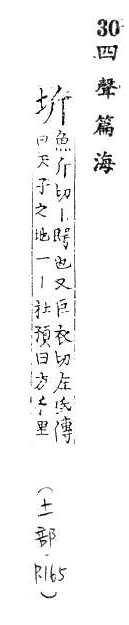 30 四聲篇海
圻 魚斤切丨也又巨衣切左氏傳
曰天子之地一丨社預曰方千里
(土部 P.165)